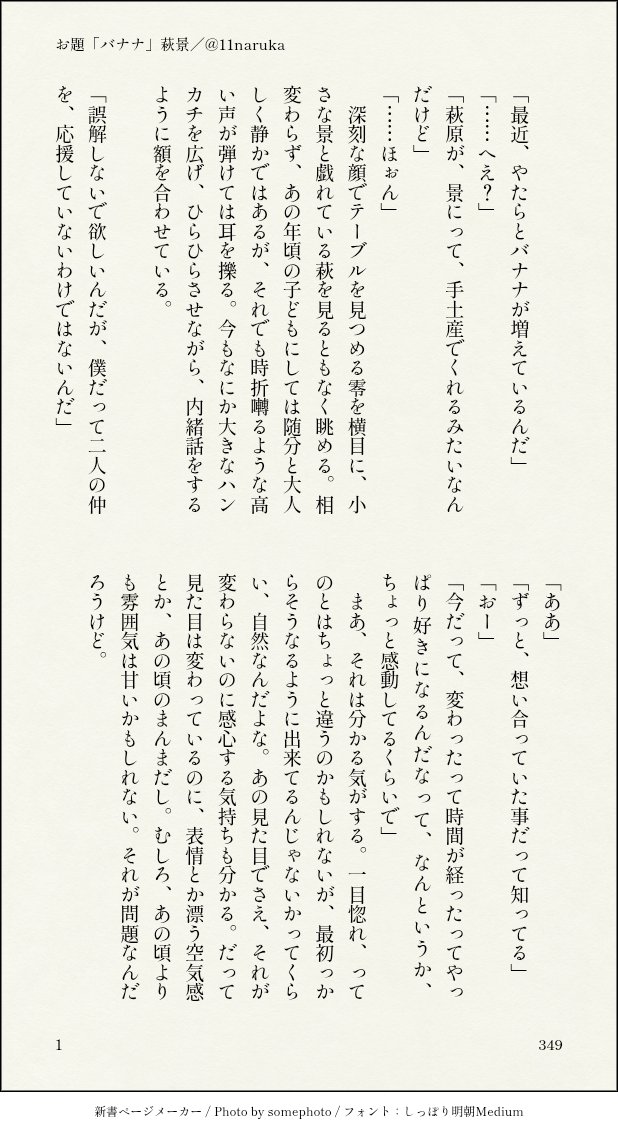 お題「バナナ」萩景／@11naruka
「最近、やたらとバナナが増えているんだ」
「……へえ？」
「萩原が、景にって、手土産でくれるみたいなん
だけど」
「……ほぉん」
　深刻な顔でテーブルを見つめる零を横目に、小
さな景と戯れている萩を見るともなく眺める。相
変わらず、あの年頃の子どもにしては随分と大人
しく静かではあるが、それでも時折囀るような高
い声が弾けては耳を擽る。今もなにか大きなハン
カチを広げ、ひらひらさせながら、内緒話をする
ように額を合わせている。
「誤解しないで欲しいんだが、僕だって二人の仲
を、応援していないわけではないんだ」
「ああ」
「ずっと、想い合っていた事だって知ってる」
「おー」
「今だって、変わったって時間が経ったってやっ
ぱり好きになるんだなって、なんというか、
ちょっと感動してるくらいで」
　まあ、それは分かる気がする。一目惚れ、って
のとはちょっと違うのかもしれないが、最初っか
らそうなるように出来てるんじゃないかってくら
い、自然なんだよな。あの見た目でさえ、それが
変わらないのに感心する気持ちも分かる。だって
見た目は変わっているのに、表情とか漂う空気感
とか、あの頃のまんまだし。むしろ、あの頃より
も雰囲気は甘いかもしれない。それが問題なんだ
ろうけど。
1
349
新書ページメーカー / Photo by somephoto / フォント：しっぽり明朝Medium